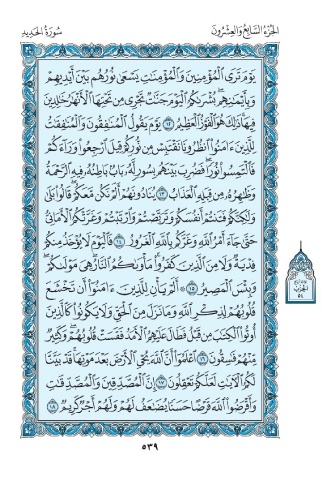 الجزء السابع والعشرون
سورة الحديد
يَوْمَ تَرَى الْمُؤْمِنِينَ وَالْمُؤْمِنَٰتِ يَسْعَىٰ نُورُهُم بَيْنَ أَيْدِيهِمْ
وَبِأَيْمَٰنِهِم بُشْرَىٰكُمُ الْيَوْمَ جَنَّٰتٌ تَجْرِى مِن تَحْتِهَا الْأَنْهَٰرُ خَٰلِدِينَ
فِيهَا ذَٰلِكَ هُوَ الْفَوْزُ الْعَظِيمُ ١٢ يَوْمَ يَقُولُ الْمُنَٰفِقُونَ وَالْمُنَٰفِقَٰتُ
لِلَّذِينَ ءَامَنُوا انظُرُونَا نَقْتَبِسْ مِن نُّورِكُمْ قِيلَ ارْجِعُوا وَرَآءَكُمْ
فَالْتَمِسُوا نُورًا فَضُرِبَ بَيْنَهُم بِسُورٍ لَّهُ بَابٌ بَاطِنُهُ فِيهِ الرَّحْمَةُ
وَظَٰهِرُهُ مِن قِبَلِهِ الْعَذَابُ ١٣ يُنَادُونَهُمْ أَلَمْ نَكُن مَّعَكُمْ قَالُوا بَلَىٰ
وَلَٰكِنَّكُمْ فَتَنتُمْ أَنفُسَكُمْ وَتَرَبَّصْتُمْ وَارْتَبْتُمْ وَغَرَّتْكُمُ الْأَمَانِىُّ
حَتَّىٰ جَآءَ أَمْرُ اللَّهِ وَغَرَّكُم بِاللَّهِ الْغَرُورُ ١٤ فَالْيَوْمَ لَا يُؤْخَذُ مِنكُمْ
فِدْيَةٌ وَلَا مِنَ الَّذِينَ كَفَرُوا مَأْوَىٰكُمُ النَّارُ هِىَ مَوْلَىٰكُمْ
وَبِئْسَ الْمَصِيرُ ١٥ ۞ أَلَمْ يَأْنِ لِلَّذِينَ ءَامَنُوا أَن تَخْشَعَ
قُلُوبُهُمْ لِذِكْرِ اللَّهِ وَمَا نَزَلَ مِنَ الْحَقِّ وَلَا يَكُونُوا كَالَّذِينَ
أُوتُوا الْكِتَٰبَ مِن قَبْلُ فَطَالَ عَلَيْهِمُ الْأَمَدُ فَقَسَتْ قُلُوبُهُمْ وَكَثِيرٌ
مِّنْهُمْ فَٰسِقُونَ ١٦ اعْلَمُوا أَنَّ اللَّهَ يُحْىِ الْأَرْضَ بَعْدَ مَوْتِهَا قَدْ بَيَّنَّا
لَكُمُ الْءَايَٰتِ لَعَلَّكُمْ تَعْقِلُونَ ١٧ إِنَّ الْمُصَّدِّقِينَ وَالْمُصَّدِّقَٰتِ
وَأَقْرَضُوا اللَّهَ قَرْضًا حَسَنًا يُضَٰعَفُ لَهُمْ وَلَهُمْ أَجْرٌ كَرِيمٌ ١٨
الحزب
٥٤
٥٣٩